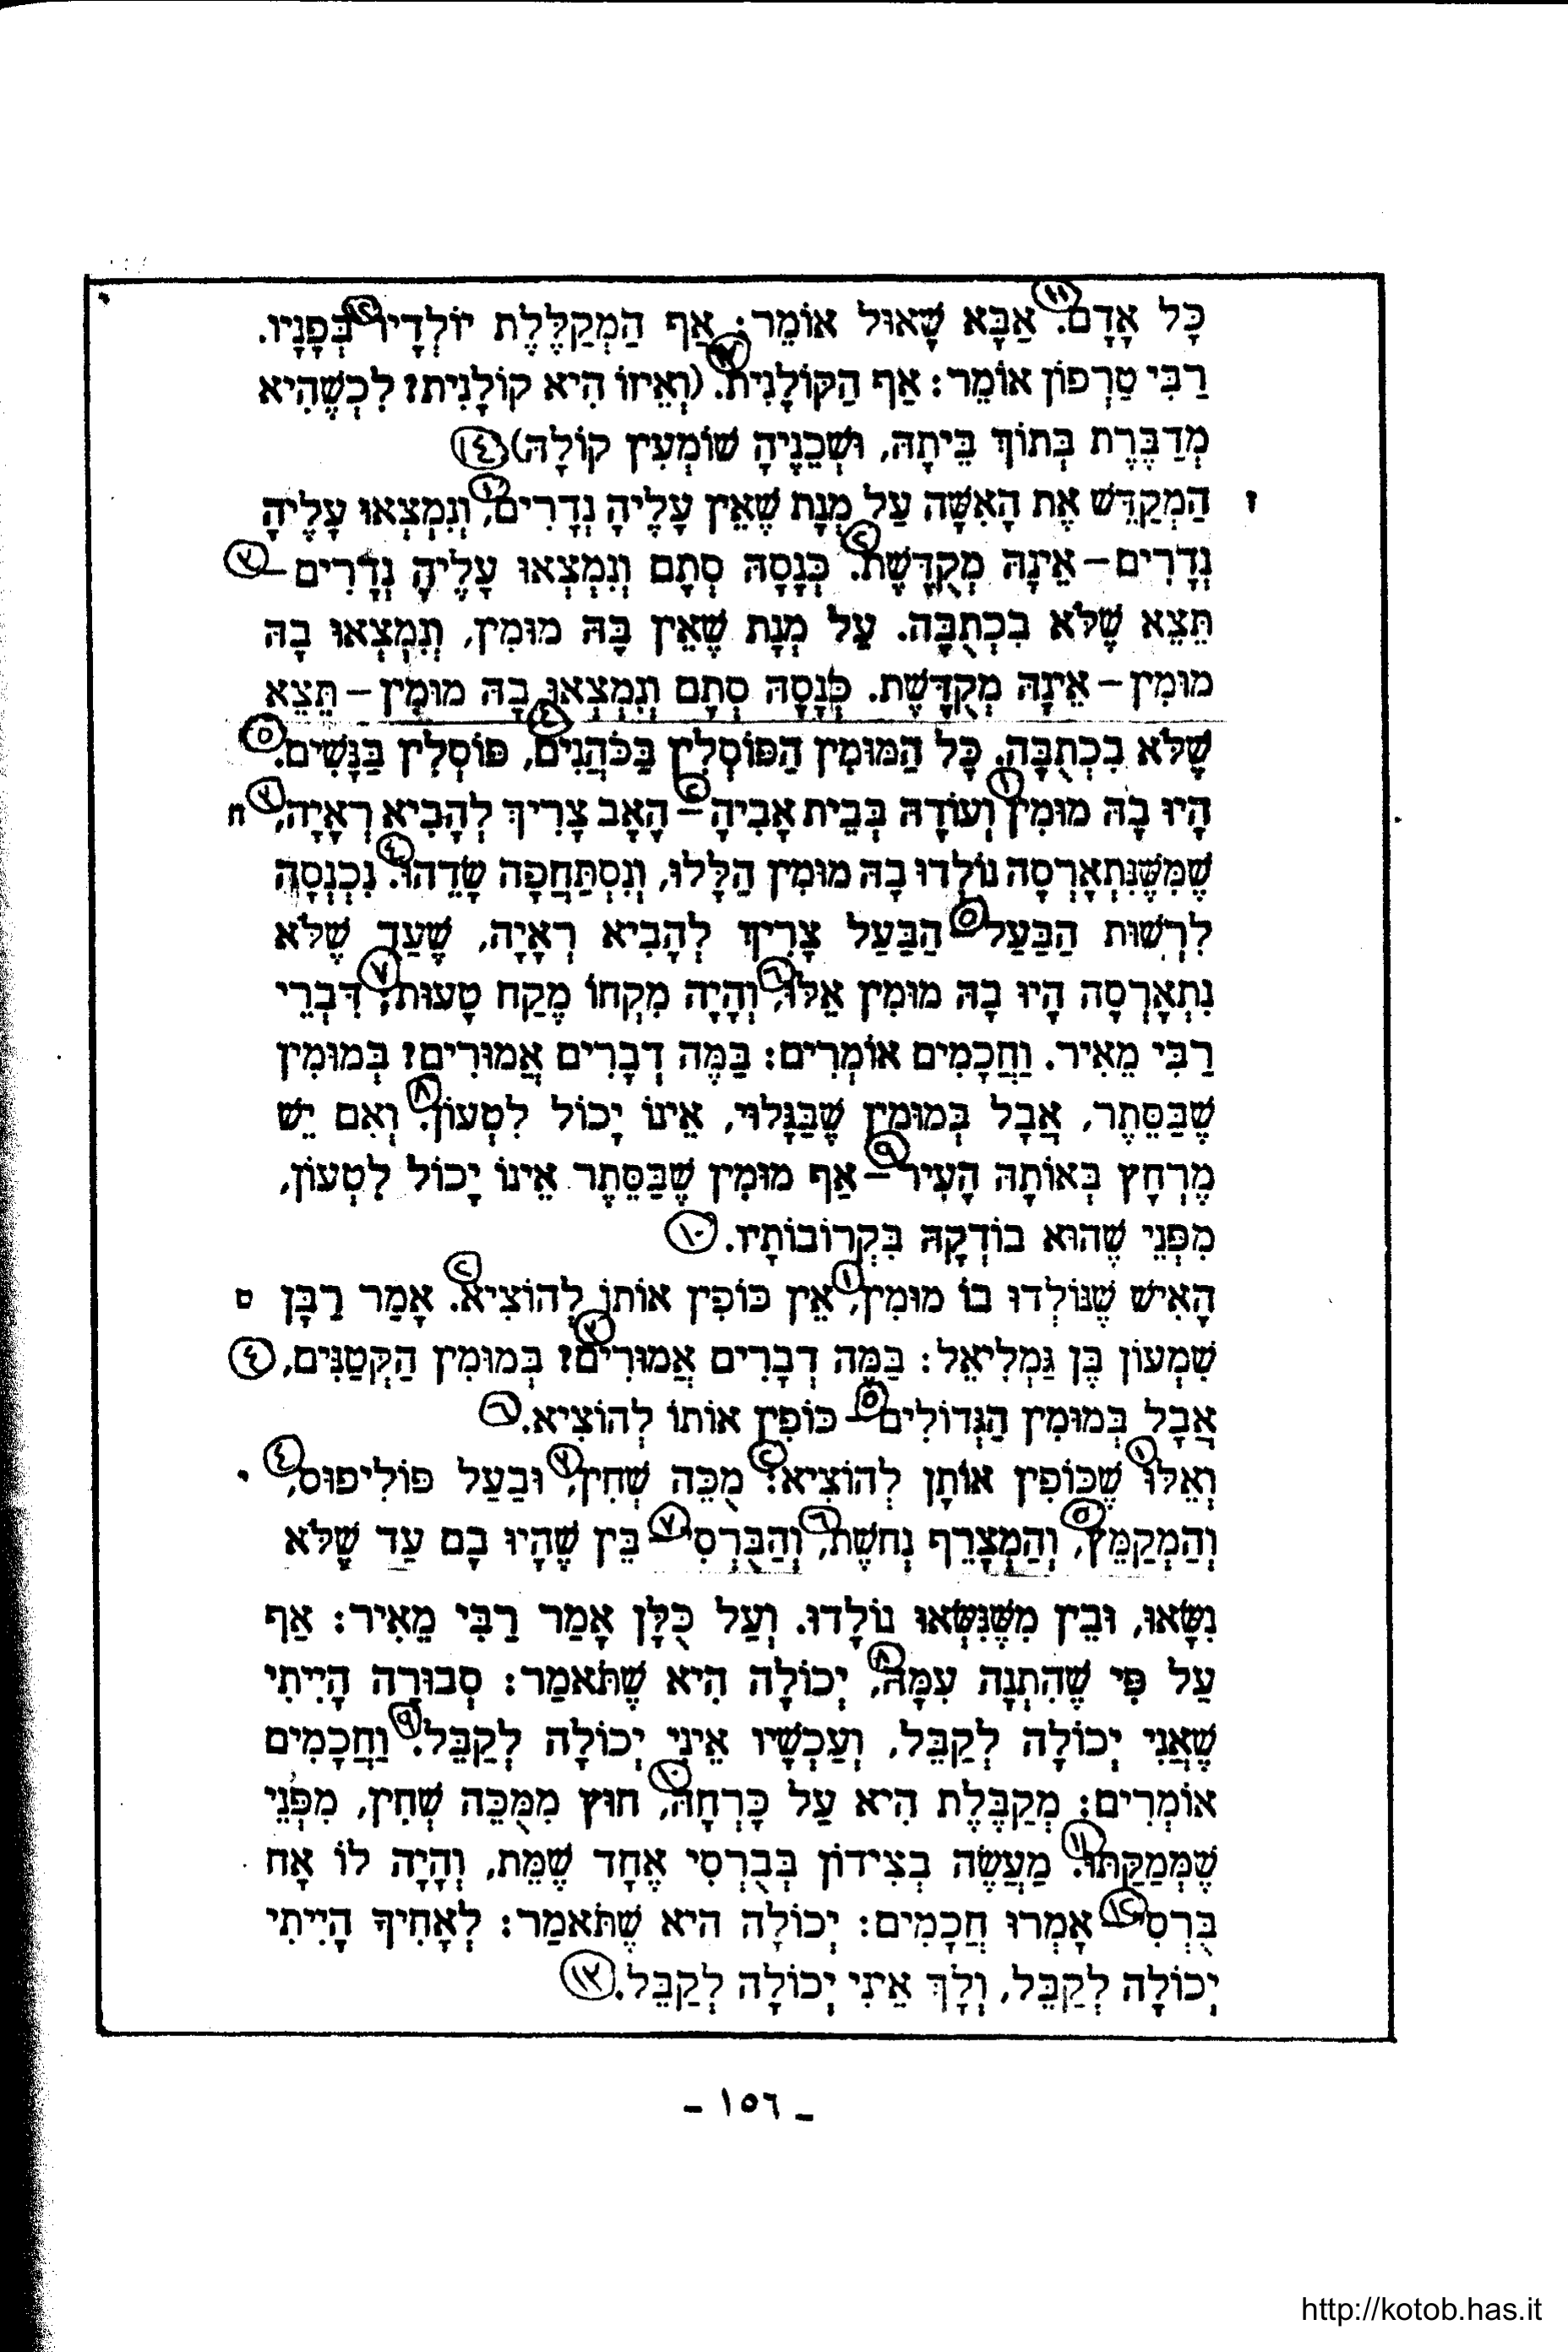 כָּל אָדָם. (١١) אַבָּא שָׁאוּל אוֹמֵר: אַף הַמְקַלֶּלֶת יוֹלְדָיו (١٢) בְּפָנָיו.
רַבִּי טַרְפוֹן אוֹמֵר: אַף הַקּוֹלָנִית. (١٣) (וְאֵיזוֹ הִיא קוֹלָנִית? לִכְשֶׁהִיא
מְדַבֶּרֶת בְּתוֹךְ בֵּיתָהּ, וּשְׁכֵנֶיהָ שׁוֹמְעִין קוֹלָהּ) (١٤)
ז הַמְקַדֵּשׁ אֶת הָאִשָּׁה עַל מְנָת שֶׁאֵין עָלֶיהָ נְדָרִים, (١) וְנִמְצְאוּ עָלֶיהָ
נְדָרִים – אֵינָהּ מְקֻדֶּשֶׁת. (٢) כְּנָסָהּ סְתָם וְנִמְצְאוּ עָלֶיהָ נְדָרִים – (٣)
תֵּצֵא שֶׁלֹּא בִכְתֻבָּה. עַל מְנָת שֶׁאֵין בָּהּ מוּמִין, וְנִמְצְאוּ בָהּ
מוּמִין – אֵינָהּ מְקֻדֶּשֶׁת. כְּנָסָהּ סְתָם וְנִמְצְאוּ בָהּ מוּמִין – תֵּצֵא
שֶׁלֹּא בִכְתֻבָּה. כָּל הַמּוּמִין הַפּוֹסְלִין בַּכֹּהֲנִים, (٤) פּוֹסְלִין בַּנָּשִׁים. (٥)
ח הָיוּ בָהּ מוּמִין (١) וְעוֹדָהּ בְּבֵית אָבִיהָ – (٢) הָאָב צָרִיךְ לְהָבִיא רְאָיָה, (٣)
שֶׁמִּשֶּׁנִּתְאָרְסָה נוֹלְדוּ בָהּ מוּמִין הַלָּלוּ, וְנִסְתַּחֲפָה שָׂדֵהוּ. (٤) נִכְנְסָה
לִרְשׁוּת הַבַּעַל – (٥) הַבַּעַל צָרִיךְ לְהָבִיא רְאָיָה, שֶׁעַד שֶׁלֹּא
נִתְאָרְסָה הָיוּ בָהּ מוּמִין אֵלּוּ, (٦) וְהָיָה מִקְחוֹ מֶקַח טָעוּת, (٧) דִּבְרֵי
רַבִּי מֵאִיר. וַחֲכָמִים אוֹמְרִים: בַּמֶּה דְבָרִים אֲמוּרִים? בְּמוּמִין
שֶׁבַּסֵּתֶר, אֲבָל בְּמוּמִין שֶׁבַּגָּלוּי, אֵינוֹ יָכוֹל לִטְעוֹן. (٨) וְאִם יֵשׁ
מֶרְחָץ בְּאוֹתָהּ הָעִיר – (٩) אַף מוּמִין שֶׁבַּסֵּתֶר אֵינוֹ יָכוֹל לִטְעוֹן,
מִפְּנֵי שֶׁהוּא בוֹדְקָהּ בִּקְרוֹבוֹתָיו. (١٠)
ט הָאִישׁ שֶׁנּוֹלְדוּ בוֹ מוּמִין, (١) אֵין כּוֹפִין אוֹתוֹ לְהוֹצִיא. (٢) אָמַר רַבָּן
שִׁמְעוֹן בֶּן גַּמְלִיאֵל: בַּמֶּה דְבָרִים אֲמוּרִים? (٣) בְּמוּמִין הַקְּטַנִּים, (٤)
אֲבָל בְּמוּמִין הַגְּדוֹלִים – (٥) כּוֹפִין אוֹתוֹ לְהוֹצִיא. (٦)
י וְאֵלּוּ (١) שֶׁכּוֹפִין אוֹתָן לְהוֹצִיא: (٢) מֻכֵּה שְׁחִין, (٣) וּבַעַל פּוֹלִיפּוּס, (٤)
וְהַמְקַמֵּץ, (٥) וְהַמְצָרֵף נְחֹשֶׁת, (٦) וְהַבֻּרְסִי – (٧) בֵּין שֶׁהָיוּ בָם עַד שֶׁלֹּא
נִשָּׂאוּ, וּבֵין מִשֶּׁנִּשְּׂאוּ נוֹלָדוּ. וְעַל כֻּלָּן אָמַר רַבִּי מֵאִיר: אַף
עַל פִּי שֶׁהִתְנָה עִמָּהּ, (٨) יְכוֹלָה הִיא שֶׁתֹּאמַר: סְבוּרָה הָיִיתִי
שֶׁאֲנִי יְכוֹלָה לְקַבֵּל, וְעַכְשָׁיו אֵינִי יְכוֹלָה לְקַבֵּל. (٩) וַחֲכָמִים
אוֹמְרִים: מְקַבֶּלֶת הִיא עַל כָּרְחָהּ, (١٠) חוּץ מִמֻּכֵּה שְׁחִין, מִפְּנֵי
שֶׁמְּמַקַּתּוּ. (١١) מַעֲשֶׂה בְצִידוֹן בְּבֻרְסִי אֶחָד שֶׁמֵּת, וְהָיָה לוֹ אָח
בֻּרְסִי – (١٢) אָמְרוּ חֲכָמִים: יְכוֹלָה הִיא שֶׁתֹּאמַר: לְאָחִיךָ הָיִיתִי
יְכוֹלָה לְקַבֵּל, וְלָךְ אֵינִי יְכוֹלָה לְקַבֵּל. (١٣)
- ١٥٦ -
http://kotob.has.it